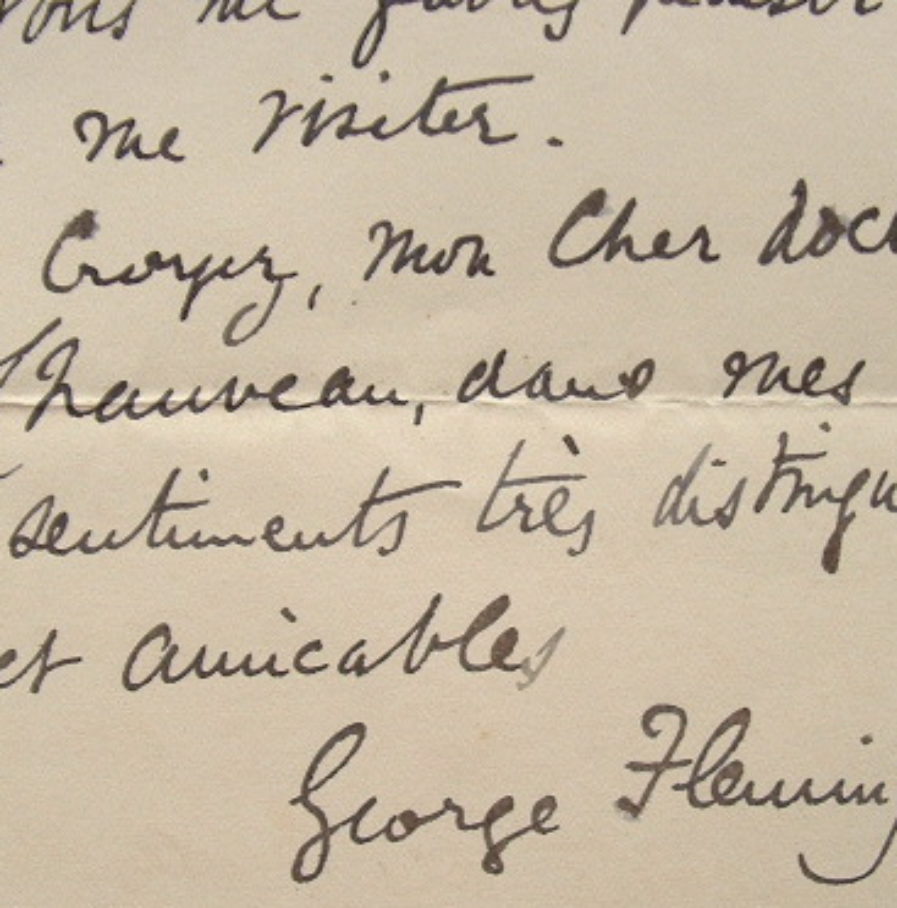 me visiter.
Croyez, mon Cher doc
Chauveau, dans mes
sentiments très distingu
et amicables
George Fleming